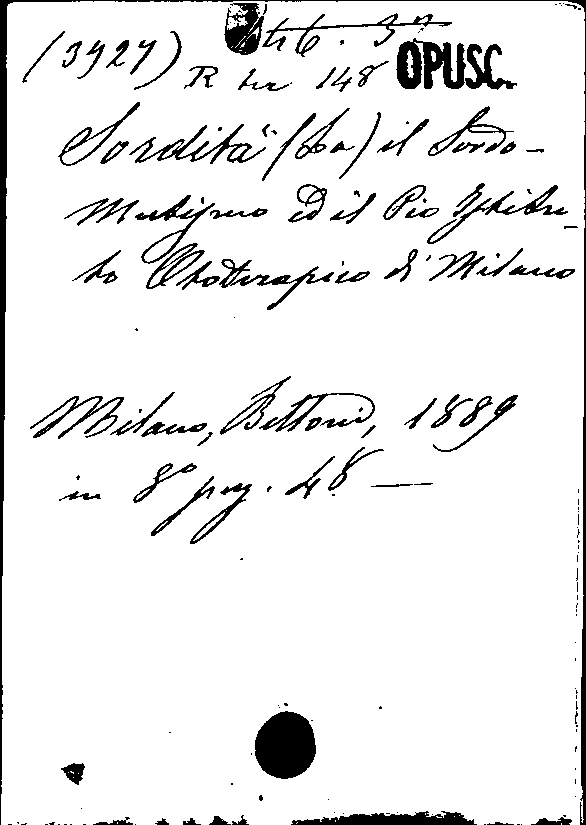 (3927) 446. 37
R ter 148 OPUSC.
Sordità (La) il Sordo-
Mutismo ed il Pio Istitu-
to Ototerapico di Milano
Milano, Bettoni, 1889
in 8° pag. 48 —